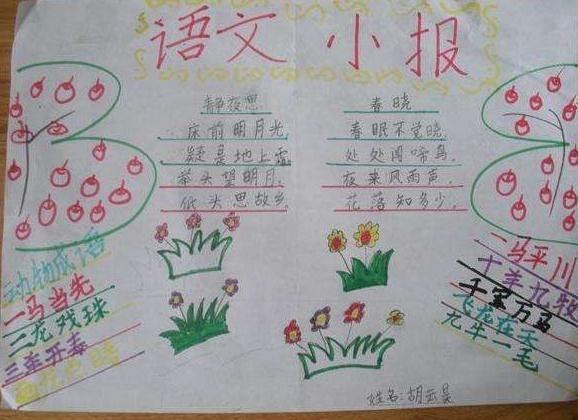 语文小报
静夜思
床前明月光,
疑是地上霜,
举头望明月,
低头思故乡.
春晓
春眠不觉晓,
处处闻啼鸟,
夜来风雨声,
花落知多少.
动物成语
一马当先
二龙戏珠
三羊开泰
一马平川
十羊九牧
千军万马
飞龙在天
九牛一毛
姓名:胡云昊